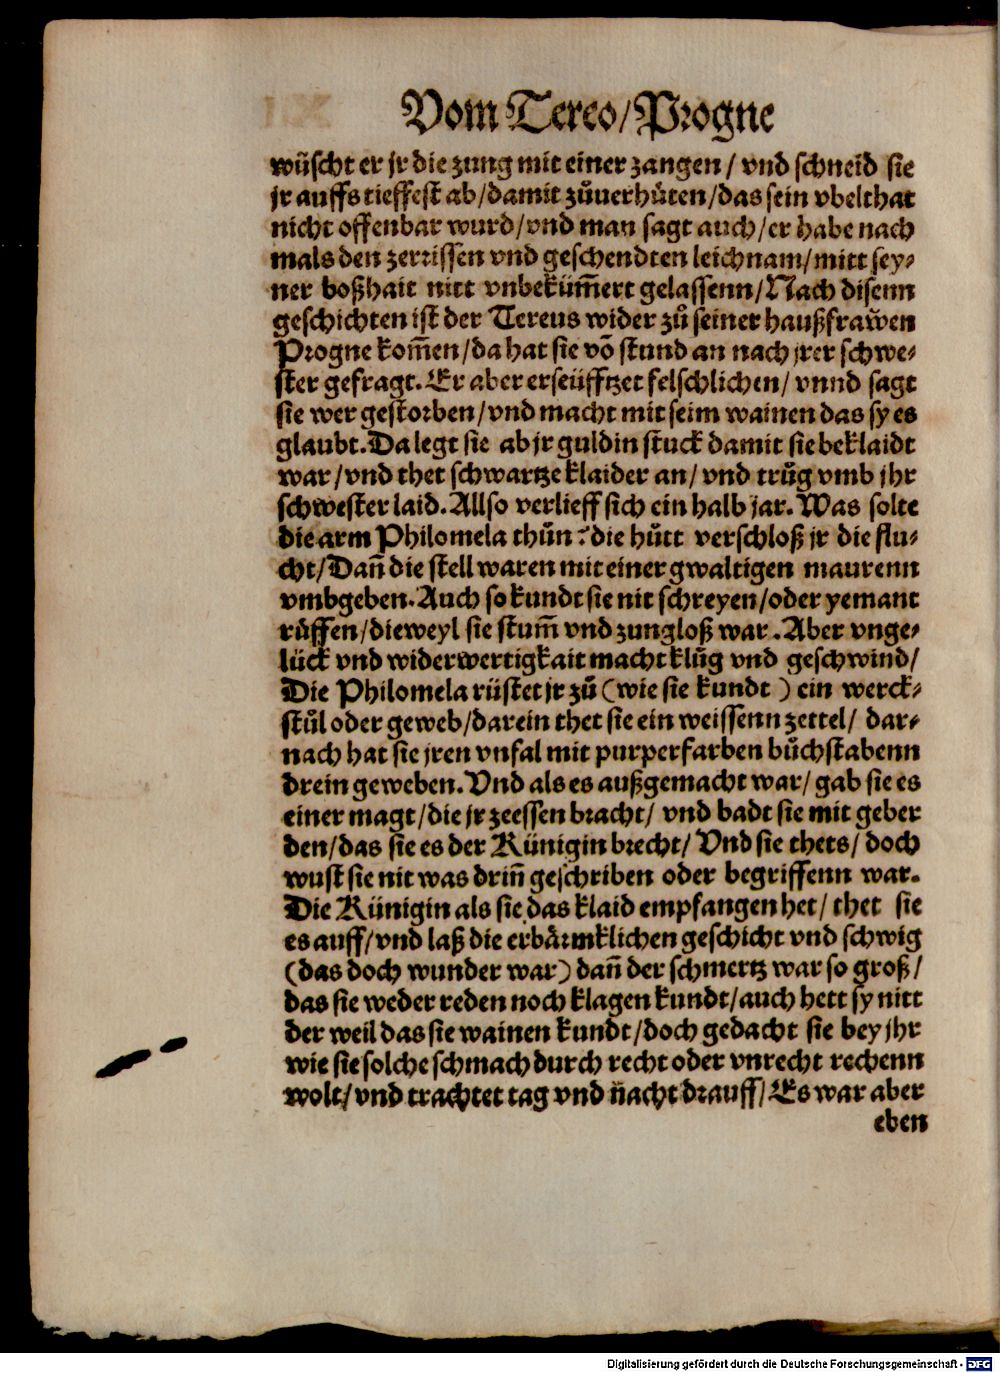 Vom Tereo/Progne
wüscht er jr die zung mit einer zangen / vnd schneid sie
jr auffs tieffest ab/damit zůuerhüten/das sein vbelthat
nicht offenbar wurd/vnd man sagt auch/er habe nach
mals den zerrissen vnd geschendten leichnam/mitt sey-
ner boßhait nitt vnbeküm̃ert gelassenn/Nach disenn
geschichten ist der Tereus wider zů seiner haußfrawen
Progne kom̃en/da hat sie võ stund an nach jrer schwe-
ster gefragt. Er aber erseüfftzet felschlichen/ vnnd sagt
sie wer gestorben/vnd macht mit seim wainen das sy es
glaubt. Da legt sie ab jr guldin stuck damit sie beklaidt
war/vnd thet schwartze klaider an/ vnd trůg vmb jhr
schwester laid. Allso verlieff sich ein halb jar. Was solte
die arm Philomela thůn? die hütt verschloß jr die flu-
cht/Dañ die stell waren mit einer gwaltigen maurenn
vmbgeben. Auch so kundt sie nit schreyen/oder yemant
růffen/dieweyl sie stum̃ vnd zungloß war. Aber vnge-
lück vnd widerwertigkait macht klůg vnd geschwind/
Die Philomela rüstet jr zů (wie sie kundt) ein werck-
stůl oder geweb/darein thet sie ein weissenn zettel/ dar-
nach hat sie jren vnfal mit purperfarben bůchstabenn
drein geweben. Vnd als es außgemacht war/ gab sie es
einer magt/die jr zeessen bracht/ vnd badt sie mit geber
den/das sie es der Künigin brecht/ Vnd sie thets/ doch
wust sie nit was driñ geschriben oder begriffenn war.
Die Künigin als sie das klaid empfangen het/ thet sie
es auff/vnd laß die erbärmklichen geschicht vnd schwig
(das doch wunder war) dañ der schmertz war so groß/
das sie weder reden noch klagen kundt/auch hett sy nitt
der weil das sie wainen kundt/doch gedacht sie bey jhr
wie sie solche schmach durch recht oder vnrecht rechenn
wolt/vnd trachtet tag vnd nacht drauff/Es war aber
eben
Digitalisierung gefördert durch die Deutsche Forschungsgemeinschaft - DFG